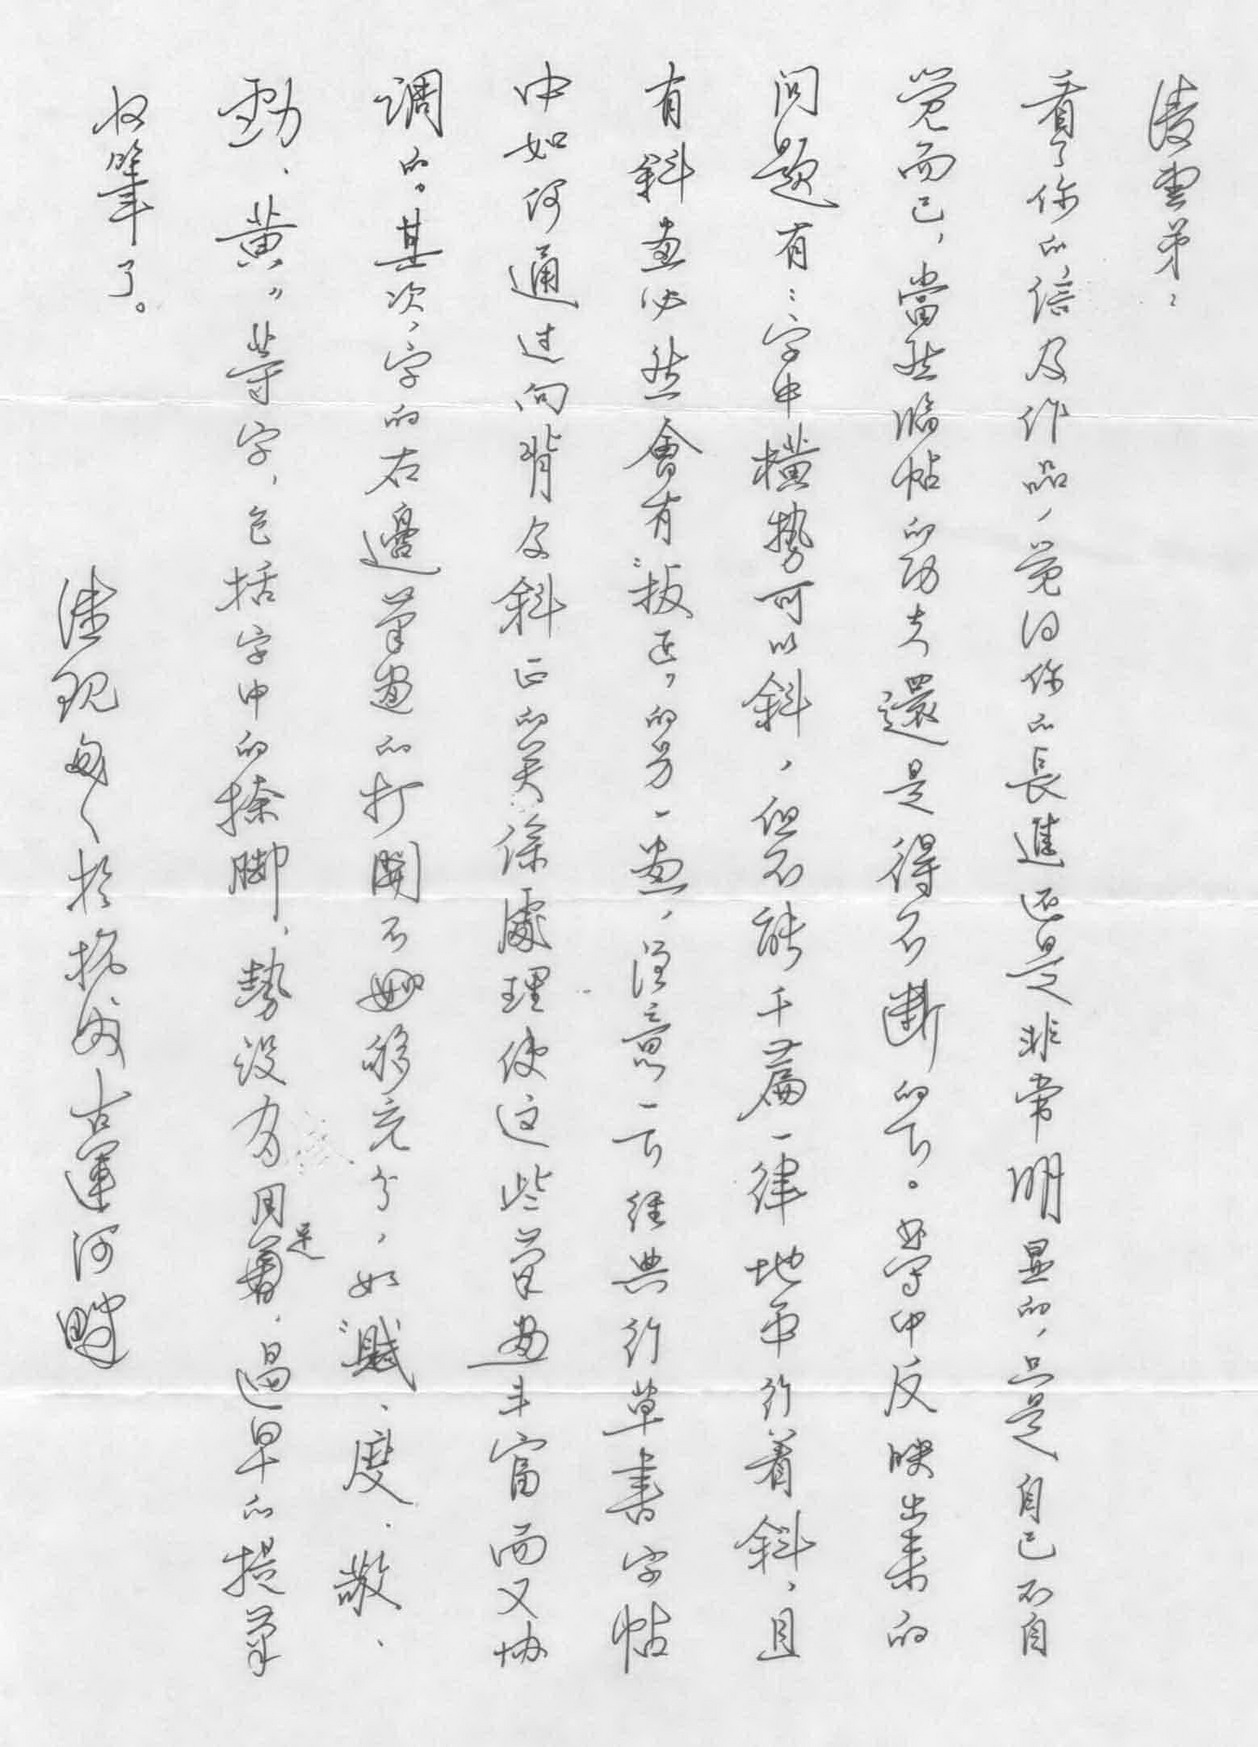 凌雲弟：
看了你的信及作品，覚得你的長進还是非常明显的，只是自己不自
覚而已，當然臨帖的功夫還是得不断的下。书写中反映出来的
问题有：字中横势可以斜，但不能千篇一律地平行着斜，且
有斜畫必然會有“扳正”的另一畫，注意一下经典行草書字帖
中如何通过向背及斜正的关係處理使这些笔畫丰富而又协
调的。其次，字的右邊笔畫的打開不夠充分，如“賦、度、敬、
動、黄”等字，包括字中的捺脚，势没有用足，過早的提笔
收筆了。
建现匆匆於杭城古運河畔